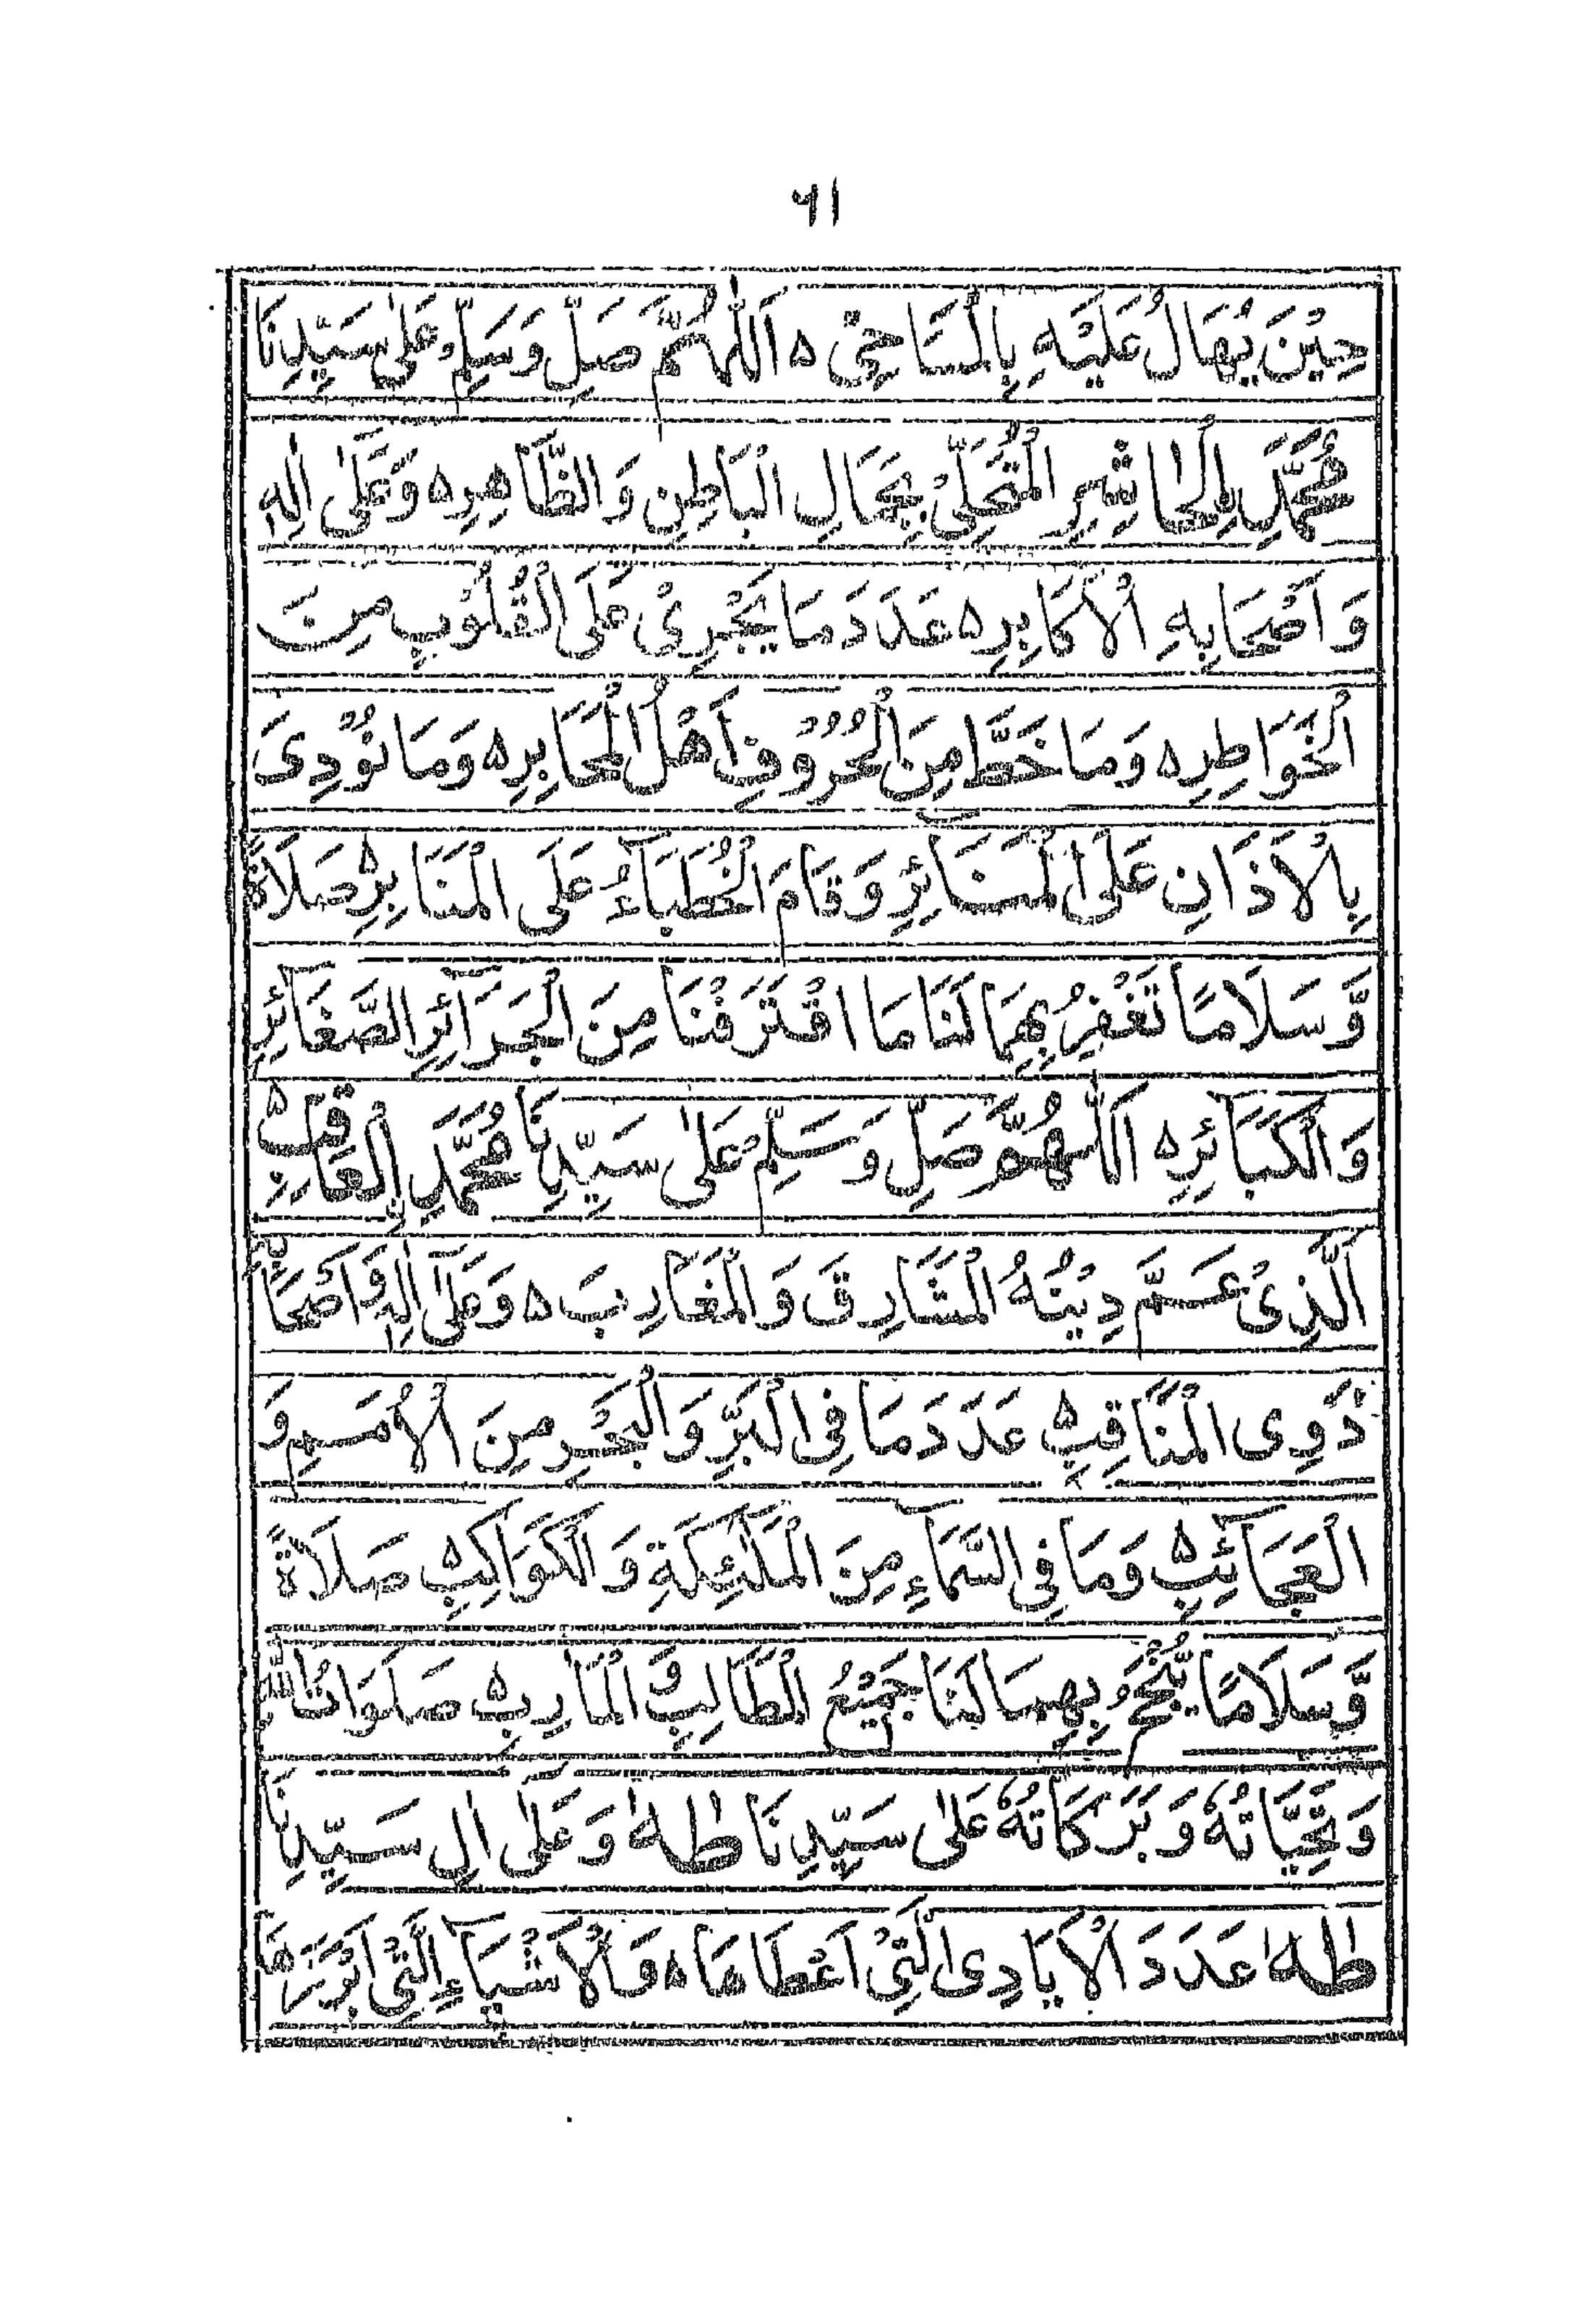 ٦١
حِيْنَ يُهَالُ عَلَيْهِ بِالْمَسَاحِيْ ه اَللّٰهُمَّ صَلِّ وَسَلِّمْ عَلٰى سَيِّدِنَا
مُحَمَّدِ ڹِالْحَاشِرِ الْمُتَحَلِّيْ بِجَمَالِ الْبَاطِنِ وَالظَّاهِرِ ه وَعَلٰى اٰلِهٖ
وَاَصْحَابِهِ الْاَكَابِرِ ه عَدَدَ مَا يَجْرِيْ عَلَى الْقُلُوْبِ مِنَ
الْخَوَاطِرِ ه وَمَا خَطَّ مِنَ الْحُرُوْفِ اَهْلُ الْمَحَابِرِ ه وَمَا نُوْدِىَ
بِالْاَذَانِ عَلَى الْمَنَائِرِ وَقَامَ الْخُطَبَآءُ عَلَى الْمَنَابِرِ ه صَلَاةً
وَّسَلَامًا تَغْفِرُ بِهِمَا لَنَا مَا اقْتَرَفْنَا مِنَ الْجَرَآئِرِ الصَّغَآئِرِ
وَالْكَبَآئِرِ ه اَللّٰهُمَّ صَلِّ وَسَلِّمْ عَلٰى سَيِّدِنَا مُحَمَّدِ ڹِالْعَاقِبِ ه
اَلَّذِيْ عَمَّ دِيْنُهُ الْمَشَارِقَ وَالْمَغَارِبَ ه وَعَلٰى اٰلِهٖ وَاَصْحَابِهٖ
ذَوِى الْمَنَاقِبِ ه عَدَدَ مَا فِى الْبَرِّ وَالْبَحْرِ مِنَ الْاُمَمِ وَ
الْعَجَآئِبِ ه وَمَا فِى السَّمَآءِ مِنَ الْمَلٰٓئِكَةِ وَالْكَوَاكِبِ ه صَلَاةً
وَّسَلَامًا يُنْجَحُ بِهِمَا لَنَا جَمِيْعُ الْمَطَالِبِ وَالْمَاٰرِبِ ه صَلَوَاتُ اللّٰهِ
وَتَحِيَّاتُهٗ وَبَرَكَاتُهٗ عَلٰى سَيِّدِنَا طٰهٰ وَعَلٰى اٰلِ سَيِّدِنَا
طٰهٰ عَدَدَ الْاَيَادِى الَّتِيْ اَعْطَاهَا ه وَالْاَشْيَآءِ الَّتِيْ اَبْرَزَهَا